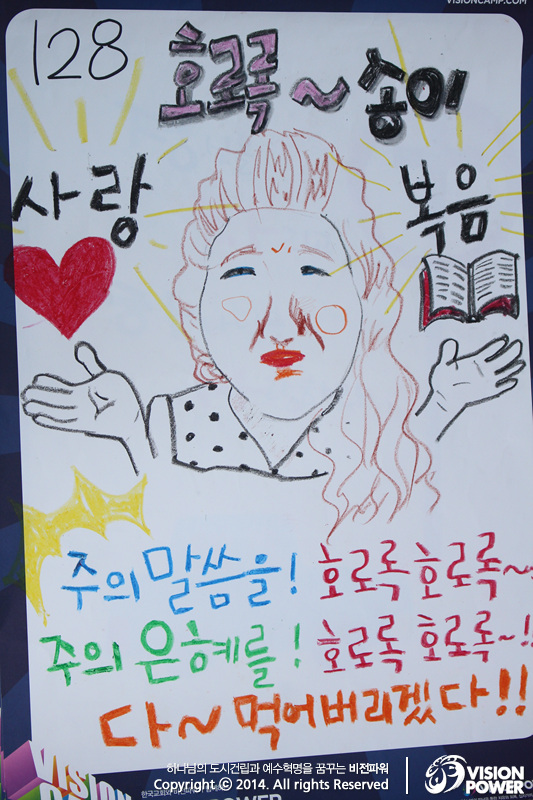 VISIONCAMP.COM
128
호로록~송이
사랑
복음
주의 말씀을! 호로록 호로록~
주의 은혜를! 호로록 호로록~!!
다~ 먹어버리겠다!!
VISION
하나님의 도시건립과 예수혁명을 꿈꾸는 비전파워
Copyright ⓒ 2014. All rights Reserved
VISION
POWER